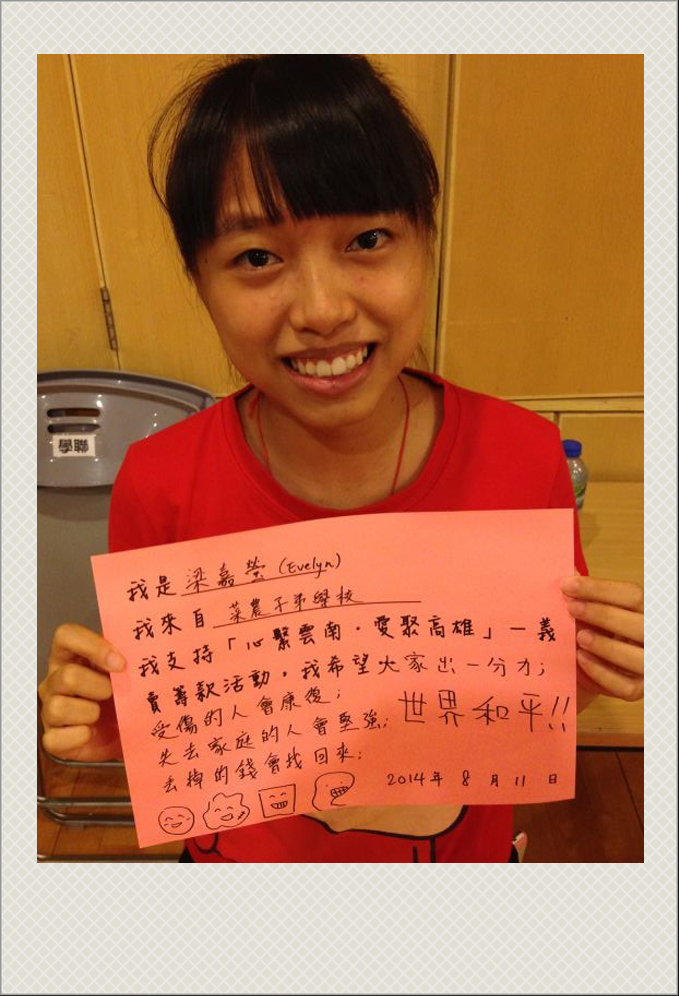 學聯
我是 梁嘉瑩 (Evelyn)
我來自 菜農子弟學校
我支持「心繫雲南·愛聚高雄」一義
賣籌款活動。我希望大家出一分力;
受傷的人會康復;
失去家庭的人會堅強;
丟掉的錢會找回來;
世界和平!!
2014年 8 月 11 日